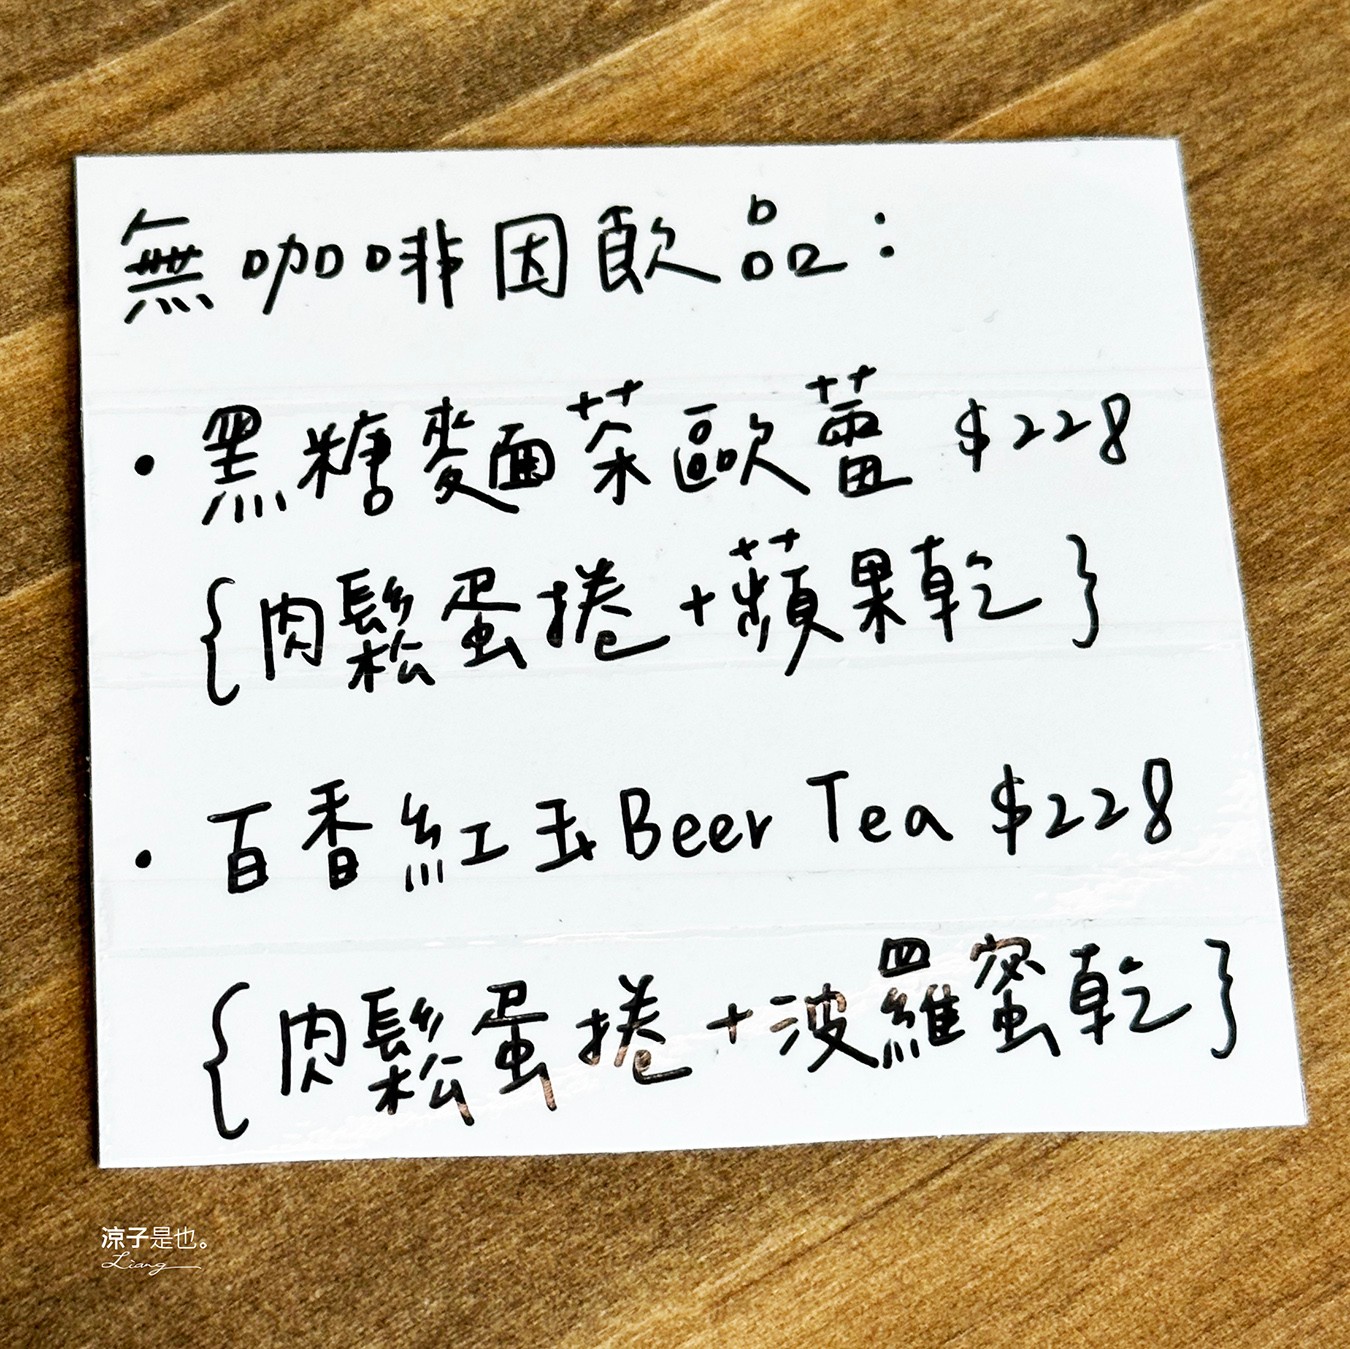 無咖啡因飲品：
・黑糖麵茶歐蕾 $228
{肉鬆蛋捲+蘋果乾}
・百香紅玉Beer Tea $228
{肉鬆蛋捲+波羅蜜乾}
涼子是也。
Liang